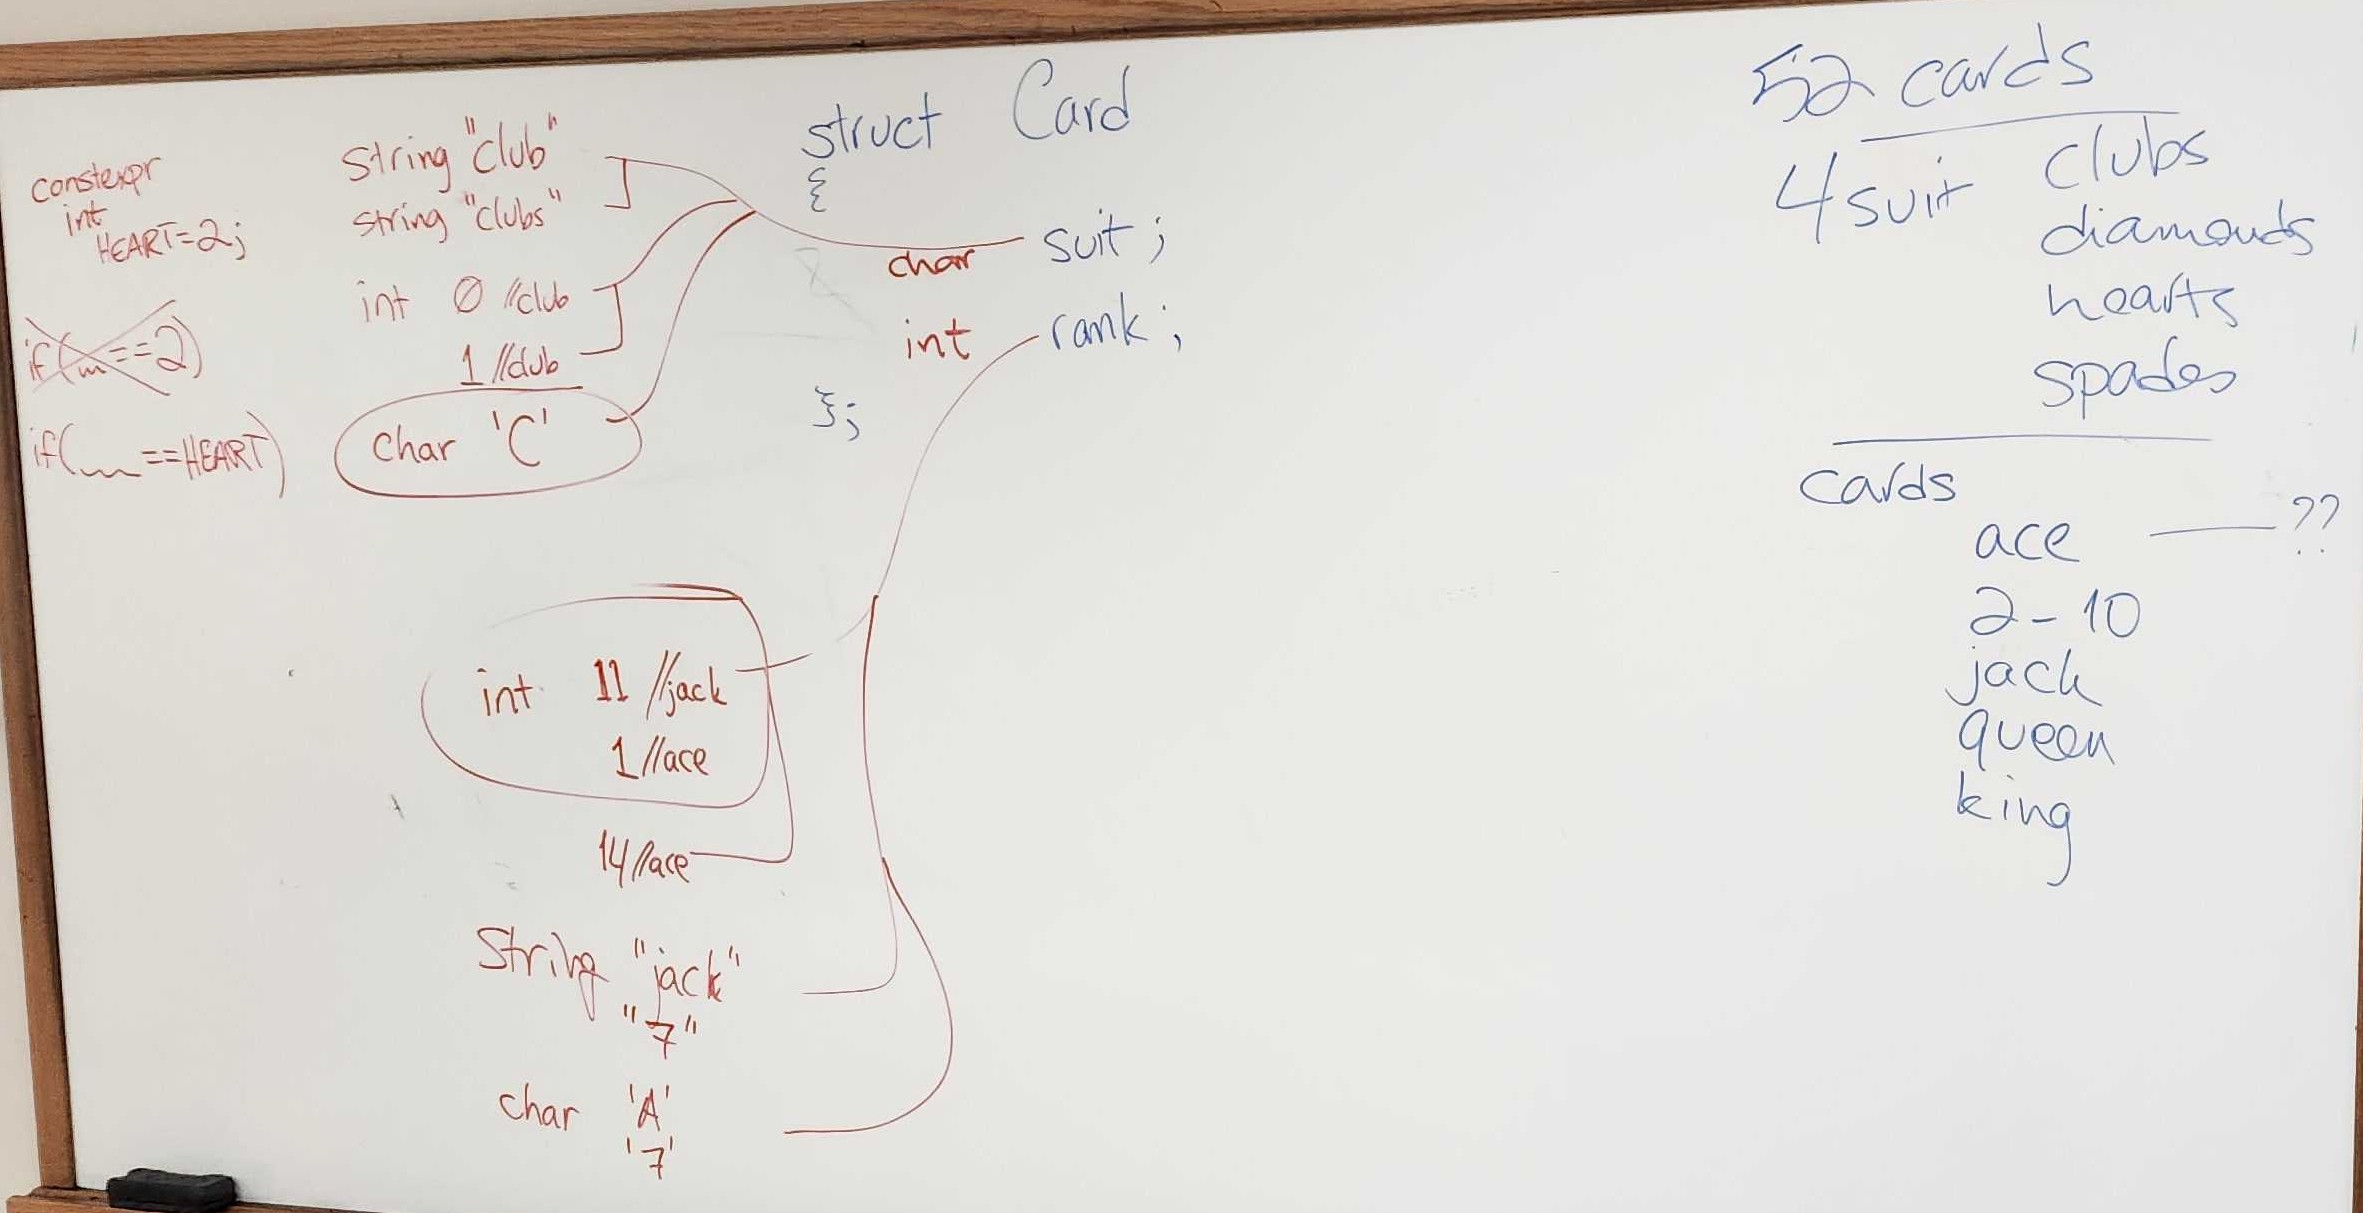 constexpr
int
HEART=2;
if( ==2)
if( ==HEART)
string "club"
string "clubs"
int 0 //club
1 //club
char 'C'
struct Card
{
char suit;
int rank;
};
int 11 //jack
1 //ace
14 //ace
String "jack"
"7"
char 'A'
'7'
52 cards
4 suit clubs
diamonds
hearts
spades
cards
ace — ??
2-10
jack
queen
king